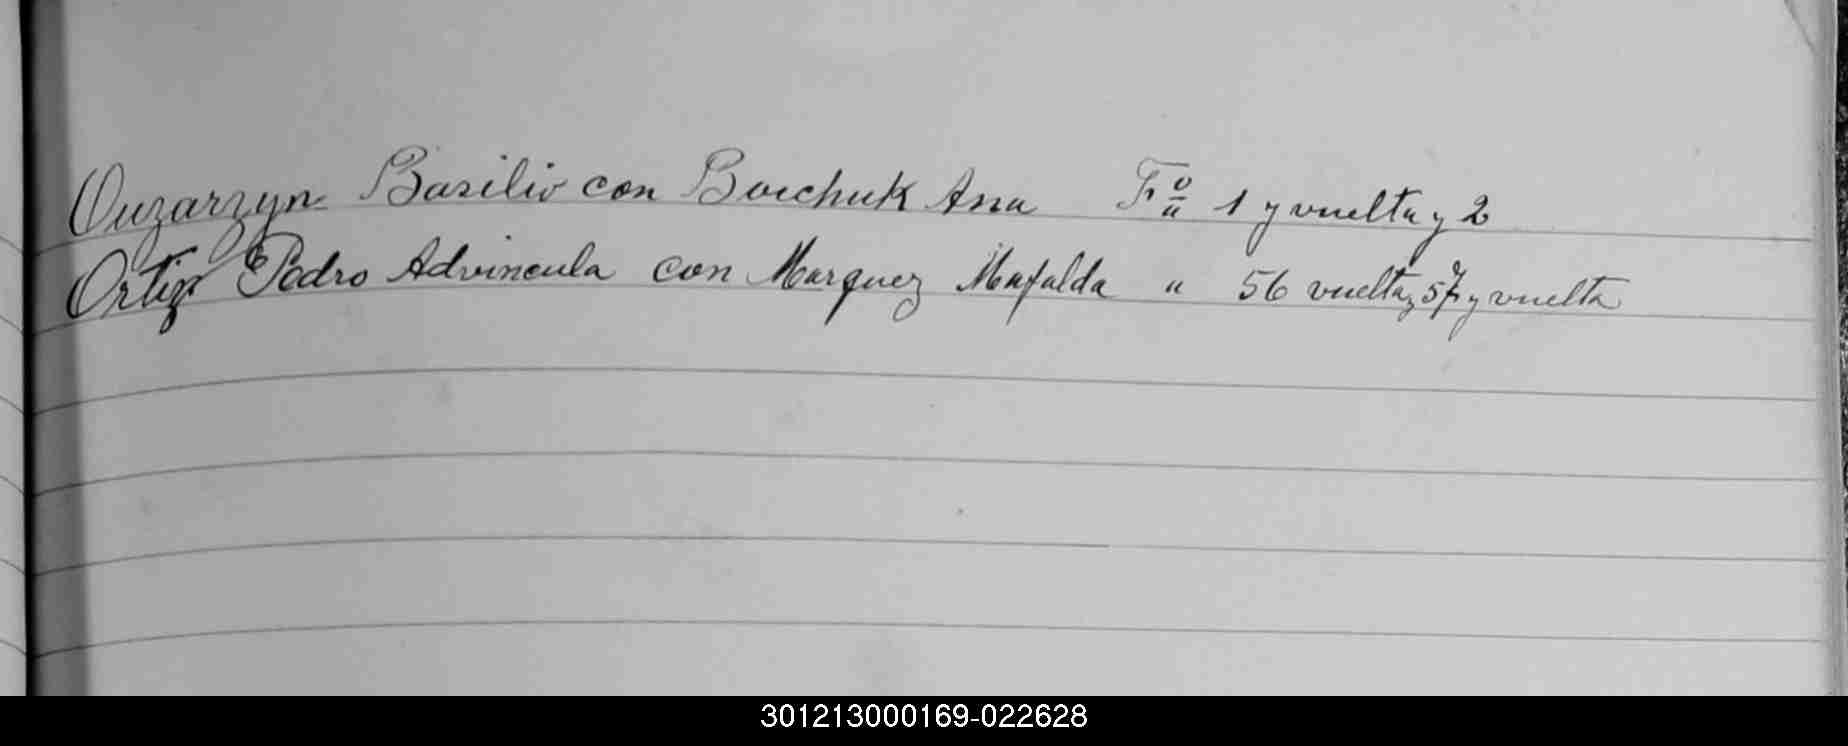 Ouzarzyn Basilio con Boichuk Ana Fº 1 y vuelta y 2
Ortiz Pedro Advincula con Marquez Mafalda " 56 vuelta, 57 y vuelta
301213000169-022628